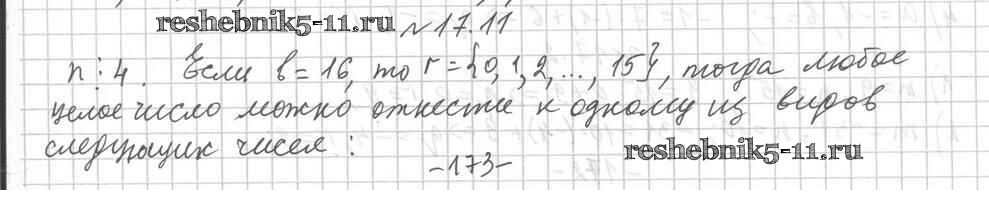 reshebnik5-11.ru № 17.11
n ⋮ 4. Если b = 16, то r = {0, 1, 2, ..., 15}, тогда любое
целое число можно отнести к одному из видов
следующих чисел:
-173-
reshebnik5-11.ru